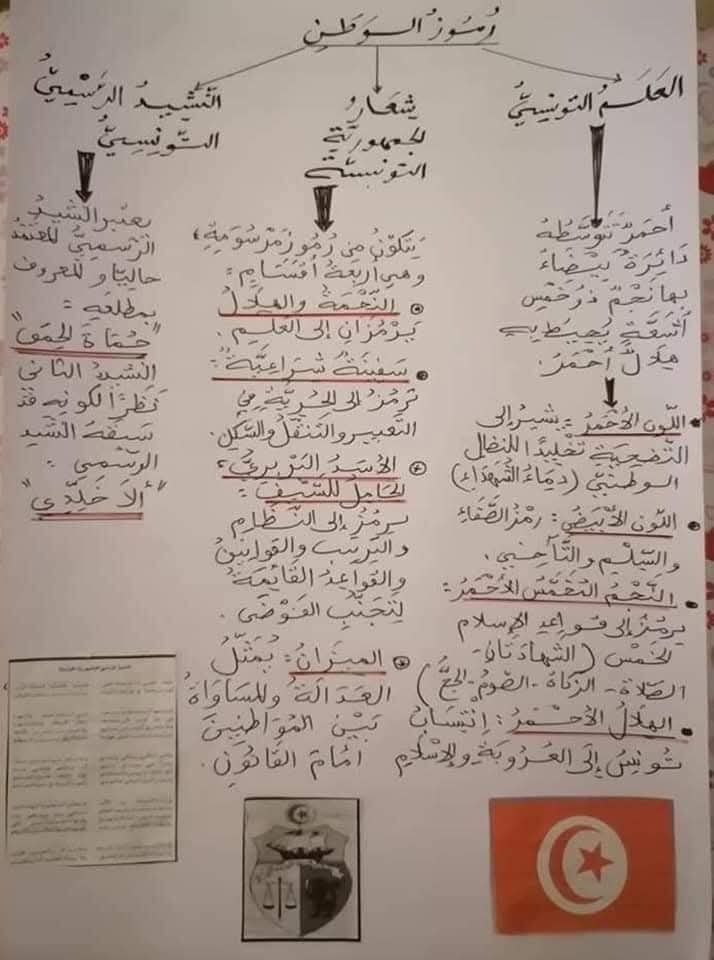 رُمُوزُ الوَطَنِ
العَلَمُ التونِسِيُّ
أحمَرُ تَتَوَسَّطُهُ
دَائِرَةٌ بَيْضَاءُ
بها نَجْمٌ ذو خَمْسِ
أشِعَّةٍ يُحِيطُ بِهِ
هِلَالٌ أَحْمَرُ.
اللّونُ الأَحْمَرُ: يشيرُ إلى
التَّضْحِيَةِ تَخْلِيدًا للنِّضَالِ
الوطنِيِّ (دِمَاءُ الشُّهَدَاءِ)
اللّونُ الأَبْيَضُ: رَمْزُ الصَّفَاءِ
والسِّلْمِ والتَّآخي.
النَّجْمُ المُخَمَّسُ الأَحْمَرُ:
يرمُزُ إلى قواعِدِ الإسلام
الخَمْسِ (الشهادَتَانِ -
الصَّلاةُ - الزَّكاةُ - الصَّومُ - الحَجُّ)
الهِلَالُ الأَحْمَرُ: اِنْتِسَابُ
تُونِسَ إلَى العُرُوبَةِ والإِسْلَامِ
شِعَارُ
الجمهوريَّةِ
التونسيَّة
يَتَكَوَّنُ مِن رُمُوزٍ مَرْسُومَةٍ،
وهيَ أربَعَةُ أقْسَامٍ:
النَّجْمَةُ والهِلَالُ
يَرْمُزَانِ إلى العَلَمِ.
سَفِينَةٌ شِراعِيَّةٌ:
تَرْمُزُ إلى الحُرِّيَّةِ فِي
التَّعبيرِ والتَّنَقُّلِ والسَّكَنِ.
الأَسَدُ البَرْبَرِيُّ،
الحَامِلُ للسَّيْفِ:
يرمُزُ إلى النِّظَامِ
والتَرتِيبِ والقَوانِينِ
والقَواعِدِ القَائِمَةِ
لِتَجَنُّبِ الفَوْضَى.
الميزَانُ: يُمَثِّلُ
العَدَالَةَ والمُساوَاةَ
بَيْنَ المُوَاطِنِينَ
أمَامَ القَانُونِ.
النَّشِيدُ الرَّسْمِيُّ
التُّونِسِيُّ
يعتبر النشيدُ
الرَّسْمِيُّ المُعتَمَدُ
حاليًا والمعروف
بمطلَعِهِ:
"حُمَاةَ الحِمَى"
النشيدَ الثاني
نَظَرًا لكونِهِ قَدْ
سَبَقَهُ النشيد
الرسْمي:
"ألَا خَلِّدِي"